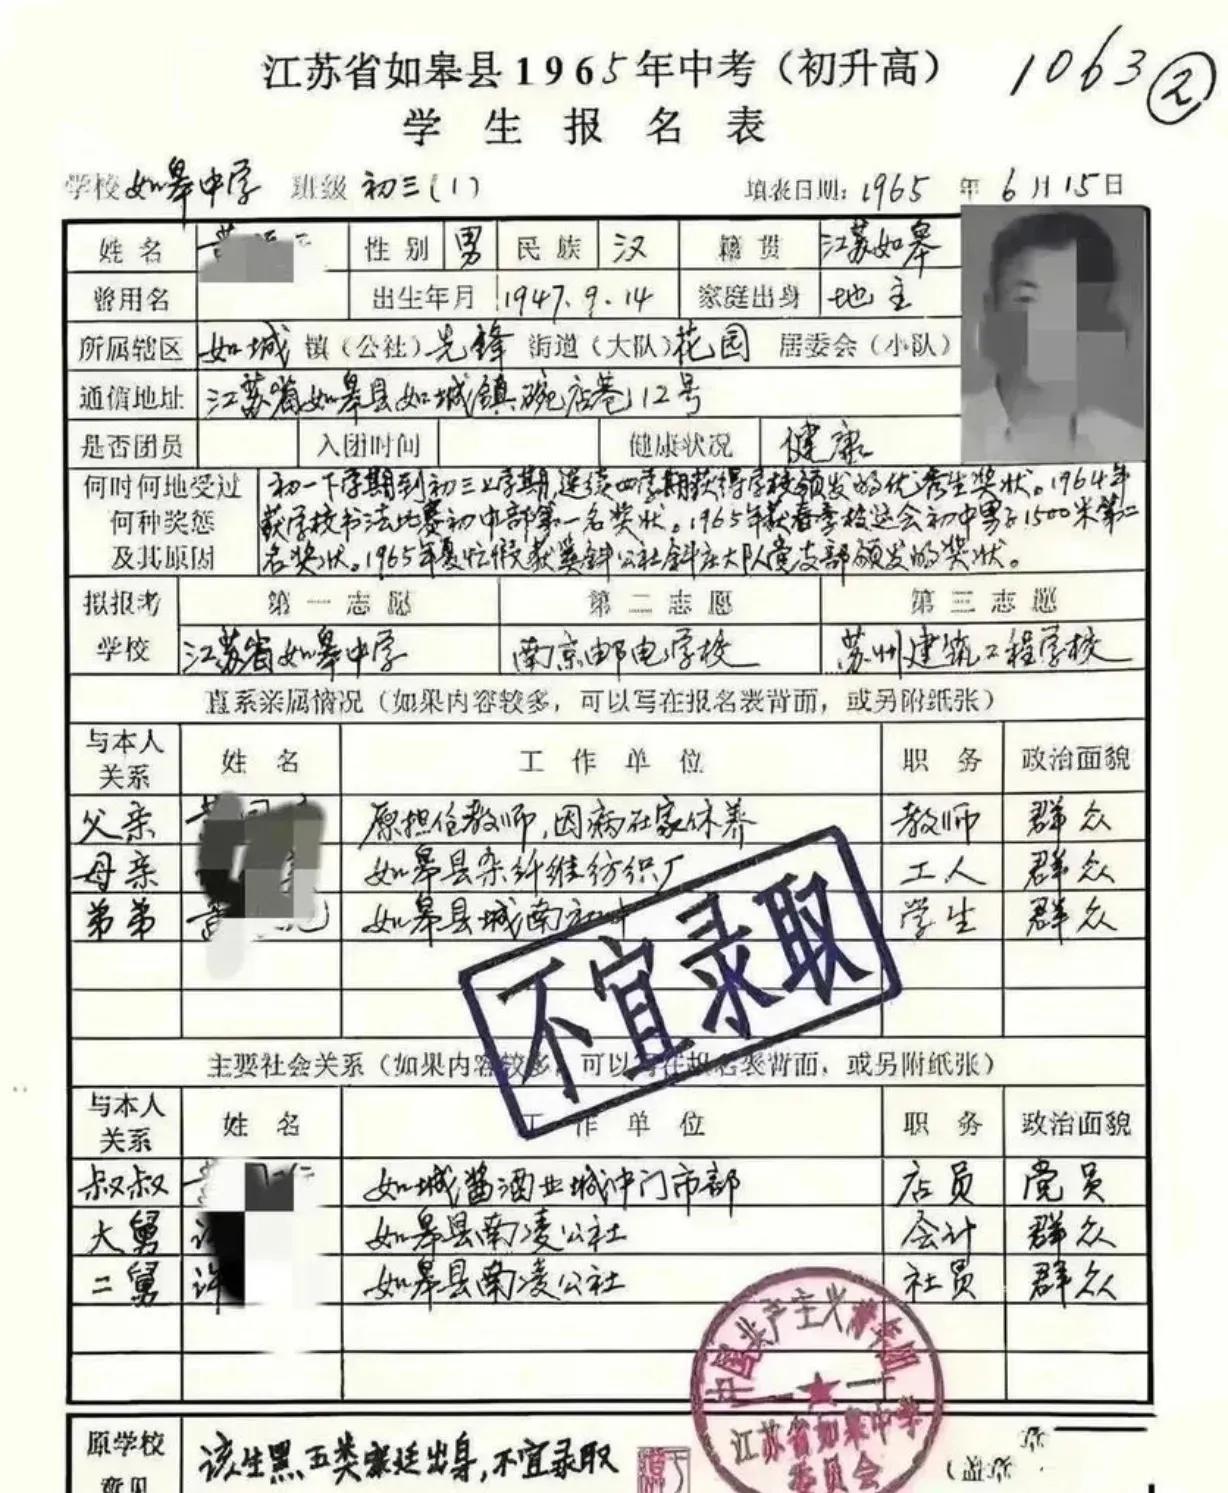 江苏省如皋县1965年中考（初升高）
1063 ②
学生报名表
学校 如皋中学 班级 初三(1) 填表日期：1965年6月15日
姓名 黄 性别 男 民族 汉 籍贯 江苏如皋
曾用名 出生年月 1947.9.14 家庭出身 地主
所属辖区 如城 镇（公社）先锋 街道（大队）花园 居委会（小队）
通信地址 江苏省如皋县如城镇碗店巷12号
是否团员 入团时间 健康状况 健康
何时何地受过
何种奖惩
及其原因
初一下学期到初三上学期，连续四学期获得学校颁发的优秀生奖状。1964年
获学校书法比赛初中部第一名奖状。1965年获春季校运会初中男子1500米第二
名奖状。1965年夏忙假获 公社 庄大队党支部颁发的奖状。
拟报考学校 第一志愿 第二志愿 第三志愿
江苏省如皋中学 南京邮电学校 苏州建筑工程学校
直系亲属情况（如果内容较多，可以写在报名表背面，或另附纸张）
与本人关系 姓名 工作单位 职务 政治面貌
父亲 原担任教师，因病在家休养 教师 群众
母亲 如皋县杂纤维纺织厂 工人 群众
弟弟 黄 如皋县城南社中 学生 群众
不宜录取
主要社会关系（如果内容较多，可以写在报名表背面，或另附纸张）
与本人关系 姓名 工作单位 职务 政治面貌
叔叔 如城酱酒业城冲门市部 店员 党员
大舅 许 如皋县南凌公社 会计 群众
二舅 许 如皋县南凌公社 社员 群众
中国共产主义青年团
江苏省如皋中学
委员会
原学校意见 该生黑五类家庭出身，不宜录取 （盖章